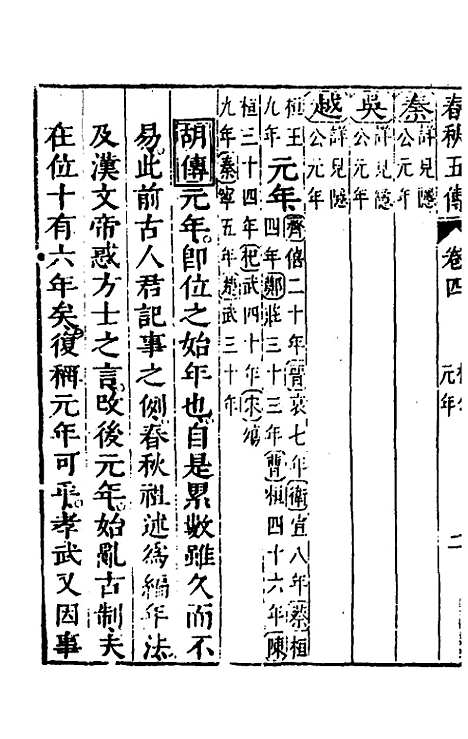 春秋五傳 卷四 元年 二
秦 詳見隱公元年
吳 詳見隱公元年
越 詳見隱公元年
桓王九年 元年 齊僖二十年 晉哀七年 衛宣八年 蔡桓四年 鄭莊三十三年 曹桓四十六年 陳
桓三十四年 杞武四十年 宋殤九年 秦寧五年 楚武三十年
胡傳 元年即位之始年也自是累數雖久而不
易此前古人君記事之例春秋祖述爲編年法
及漢文帝惑方士之言改後元年始亂古制夫
在位十有六年矣復稱元年可乎孝武又因事